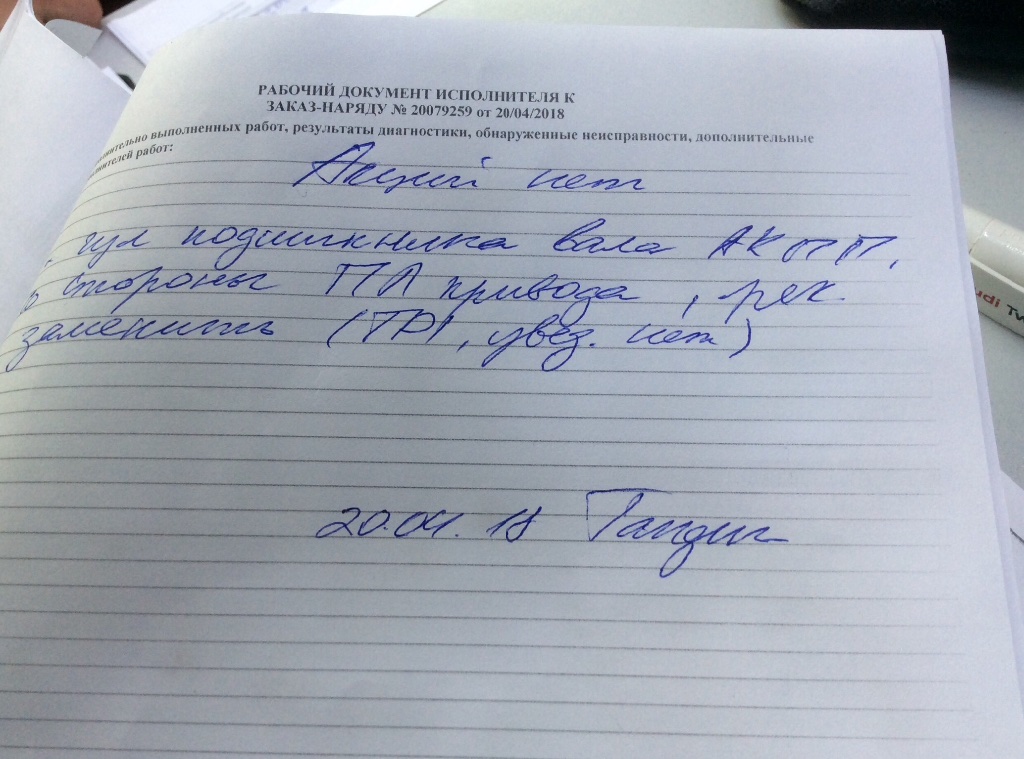 РАБОЧИЙ ДОКУМЕНТ ИСПОЛНИТЕЛЯ К
ЗАКАЗ-НАРЯДУ № 20079259 от 20/04/2018
выполненных работ, результаты диагностики, обнаруженные неисправности, дополнительные
работ:
Акций нет
гул подшипника вала АКПП,
со стороны ПЛ привода, рек.
заменить (TPI, увед. нет)
20.04.18